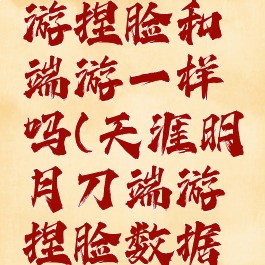 游捏脸和
端游一样
吗(天涯明
月刀端游
捏脸数据